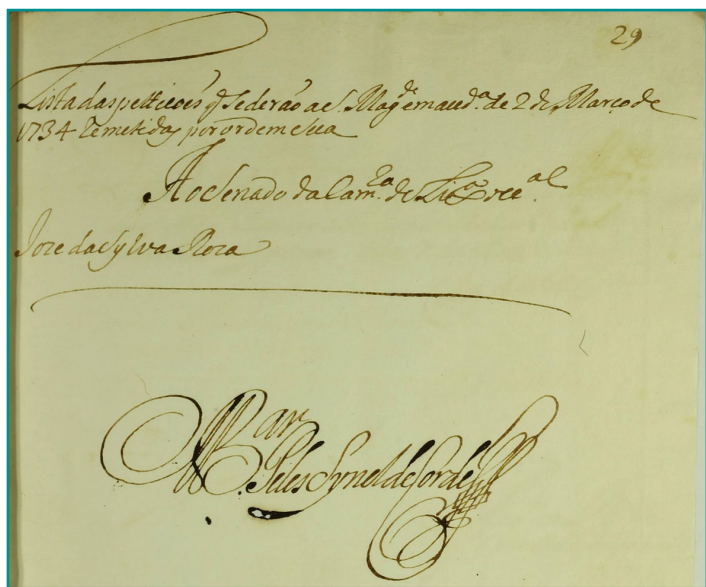 29
Lista das petticoẽs q̃ se derão a S. Mag.de em aud.a de 2 de Março de
1734 Remetidas por ordem sua
Ao Senado da Cam.ra de Lix.a occ.al
Joze da Sylva Roza